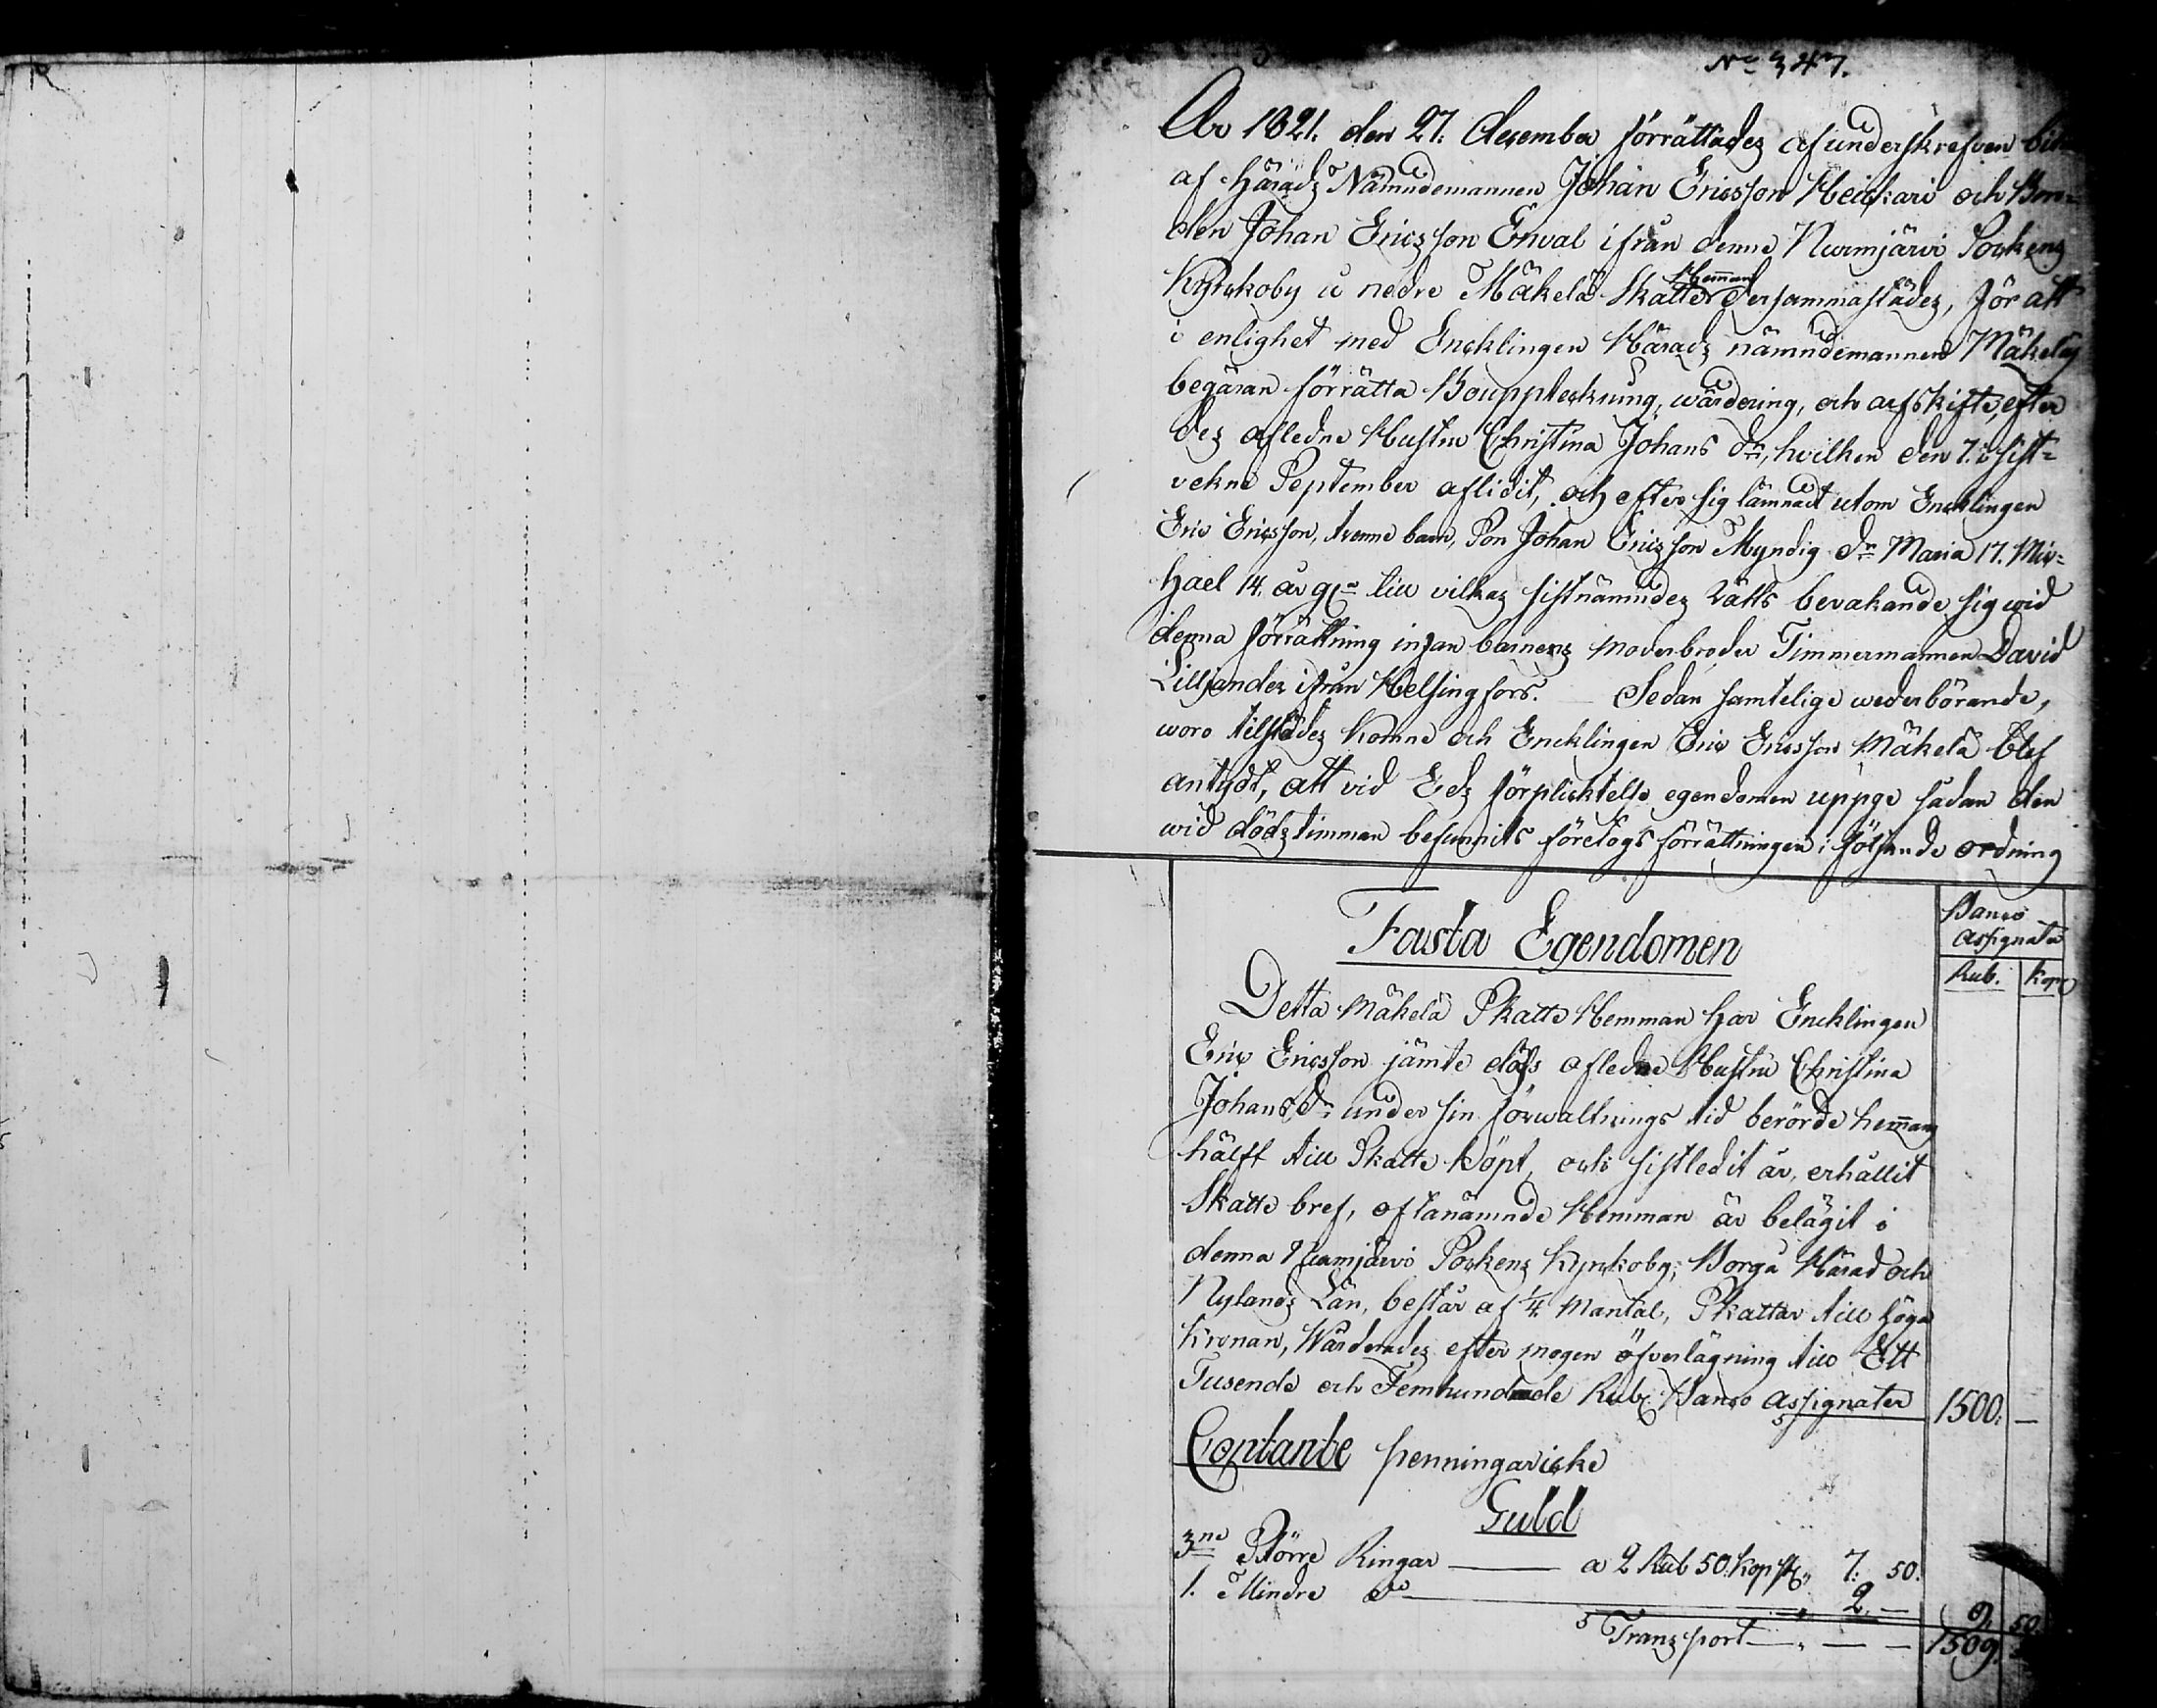 No 347.
År 1821. den 27. december förrättades af underskrefven
af Härads Nämndemannen Johan Ericsson Heickari och Bon=
den Johan Ericsson Enval ifrån denne Nurmjärvi Sockens
Kyrckoby å nedre Mäkelä Skatte Hemman dersammastädes, för att
i enlighet med Encklingen Härads nämndemannens Mäkeläs
begäran förrätta Bouppteckning, wärdering, och arfskifte, efter
des afledne Hustru Christina Johans dr, hvilken den 7. i sist=
vekne September aflidit, och efter sig lämnadt utom Encklingen
Eric Ericsson, trenne barn, Son Johan Ericsson Myndig dr Maria 17. Mic=
hael 14. år gl till vilkas sistnämndes rätts bevakande sig wid
denna förrättning infan barnens moderbroder Timmermannen David
Lilljander ifrån Helsingfors. Sedan samtelige wederbörande,
woro tilstädes komne och Encklingen Eric Ericsson Mäkelä blef
antydt, att vid Eds förplicktelse egendomen uppge sådan den
wid dödstimman befunnits företogs förrättningen i följande ordning
Fasta Egendomen
Banco Assignater
Rub. Kop
Detta Mäkelä Skatte Hemman har Encklingen
Eric Ericsson jämte dess afledne Hustru Christina
Johans dr under sin förwaltnings tid berörde hemans
hälft till Skatte köpt, och sistledit år, erhållit
Skatte bref, oftanämnde Hemman är belägit i
denna Nurmjärvi Sockens Kyrckoby, Borgå Härad och
Nylands Län, består af 1/4 Mantal, Skattar till höga
Kronan, Wärderades efter mogen öfverlägning till Ett
Tusende och Femhundrade Rub. Banco Assignater 1500. —
Contante penningar icke
Guld
3ne Större Ringar — a 2 Rub 50. Kop st 7. 50.
1. Mindre do — 2. — 9. 50
Transport — — — 1509.